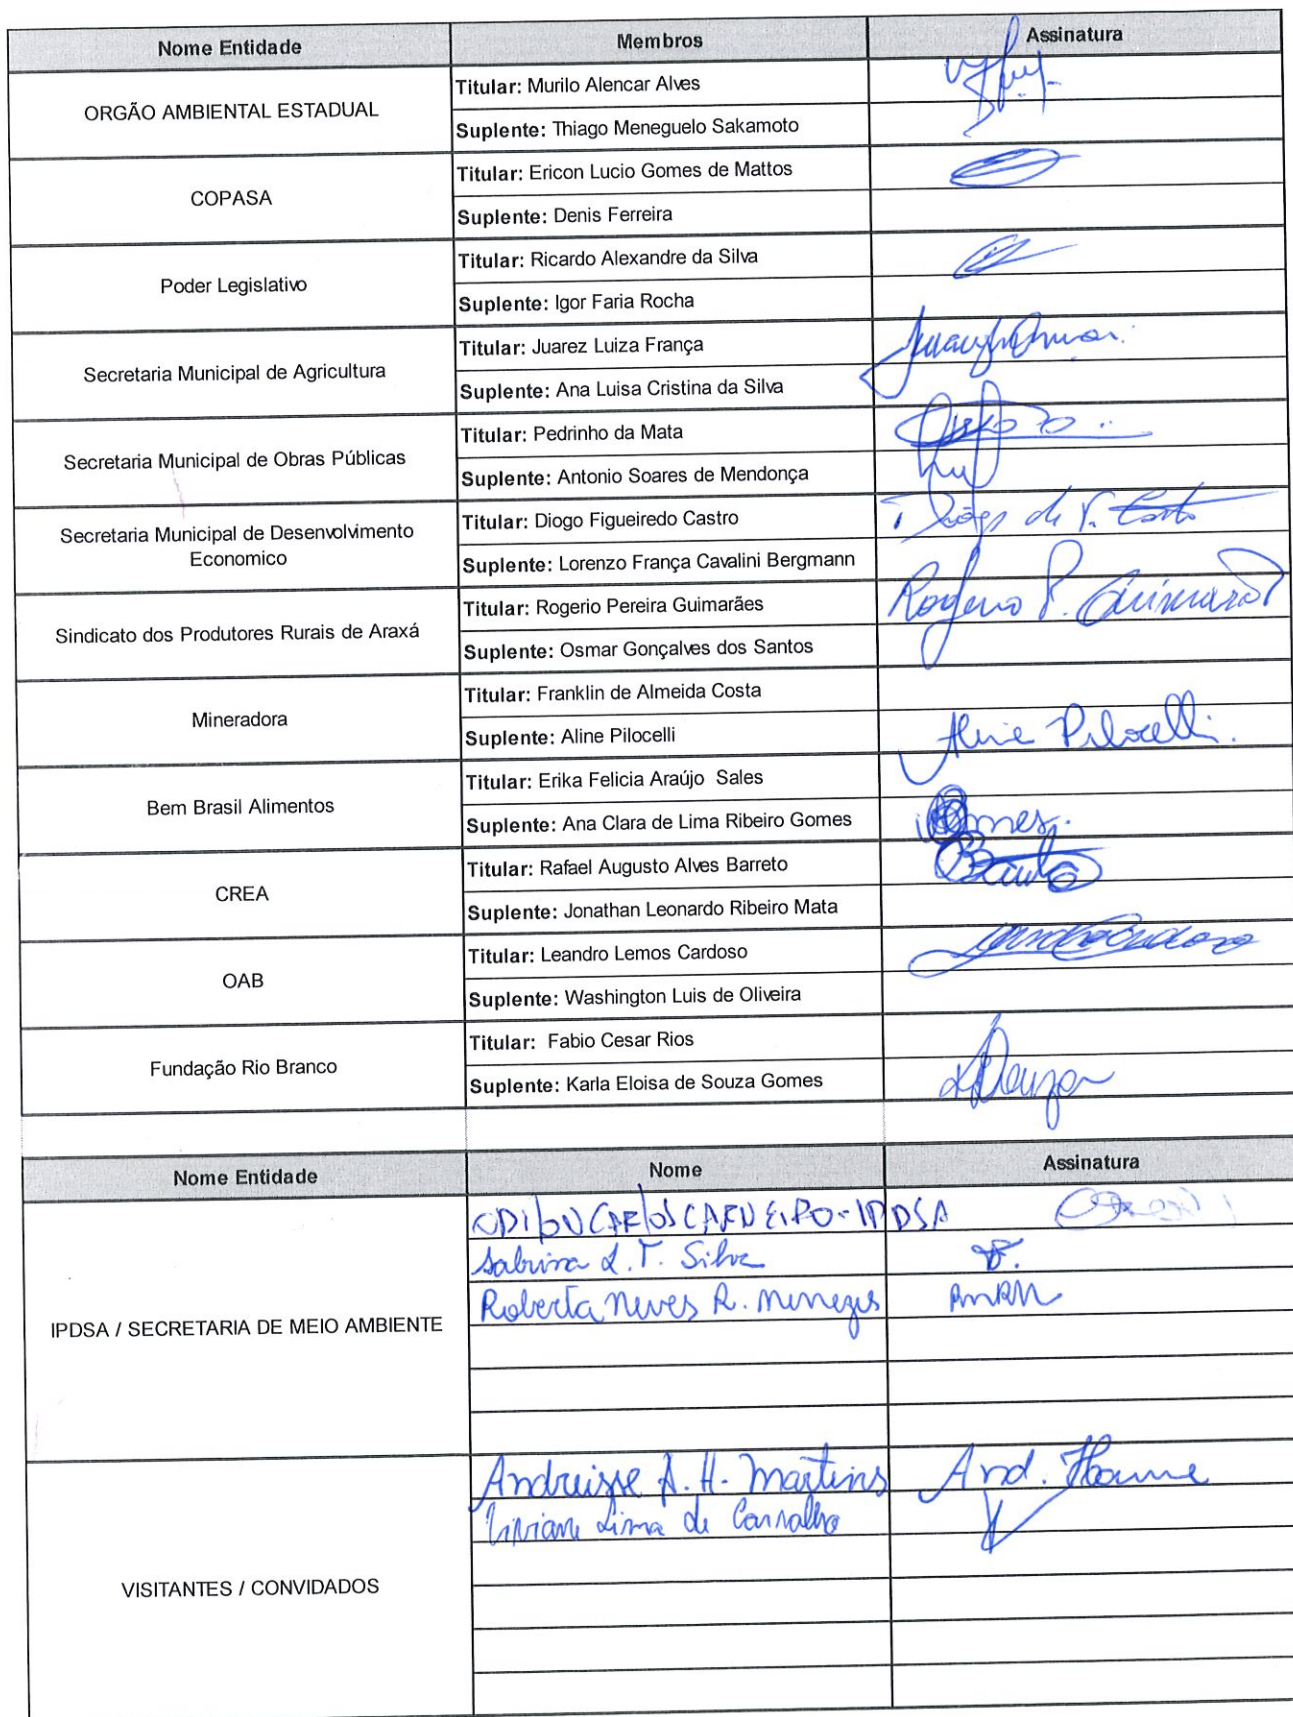 Nome Entidade Membros Assinatura
ORGÃO AMBIENTAL ESTADUAL
Titular: Murilo Alencar Alves
Suplente: Thiago Meneguelo Sakamoto
COPASA
Titular: Ericon Lucio Gomes de Mattos
Suplente: Denis Ferreira
Poder Legislativo
Titular: Ricardo Alexandre da Silva
Suplente: Igor Faria Rocha
Secretaria Municipal de Agricultura
Titular: Juarez Luiza França
Suplente: Ana Luisa Cristina da Silva
Secretaria Municipal de Obras Públicas
Titular: Pedrinho da Mata
Suplente: Antonio Soares de Mendonça
Secretaria Municipal de Desenvolvimento
Economico
Titular: Diogo Figueiredo Castro
Diogo de F. Castro
Suplente: Lorenzo França Cavalini Bergmann
Sindicato dos Produtores Rurais de Araxá
Titular: Rogerio Pereira Guimarães
Rogerio P. Guimarães
Suplente: Osmar Gonçalves dos Santos
Mineradora
Titular: Franklin de Almeida Costa
Suplente: Aline Pilocelli
Aline Pilocelli
Bem Brasil Alimentos
Titular: Erika Felicia Araújo Sales
Suplente: Ana Clara de Lima Ribeiro Gomes
CREA
Titular: Rafael Augusto Alves Barreto
Suplente: Jonathan Leonardo Ribeiro Mata
OAB
Titular: Leandro Lemos Cardoso
Leandro Cardoso
Suplente: Washington Luis de Oliveira
Fundação Rio Branco
Titular: Fabio Cesar Rios
Suplente: Karla Eloisa de Souza Gomes
Nome Entidade Nome Assinatura
IPDSA / SECRETARIA DE MEIO AMBIENTE
ODILON CARLOS CARNEIRO - IPDSA
Sabrina L. T. Silva
Roberta Neves R. Menezes RNRM
VISITANTES / CONVIDADOS
Andreisse A. H. Martins And.
Viviane Lima de Carvalho